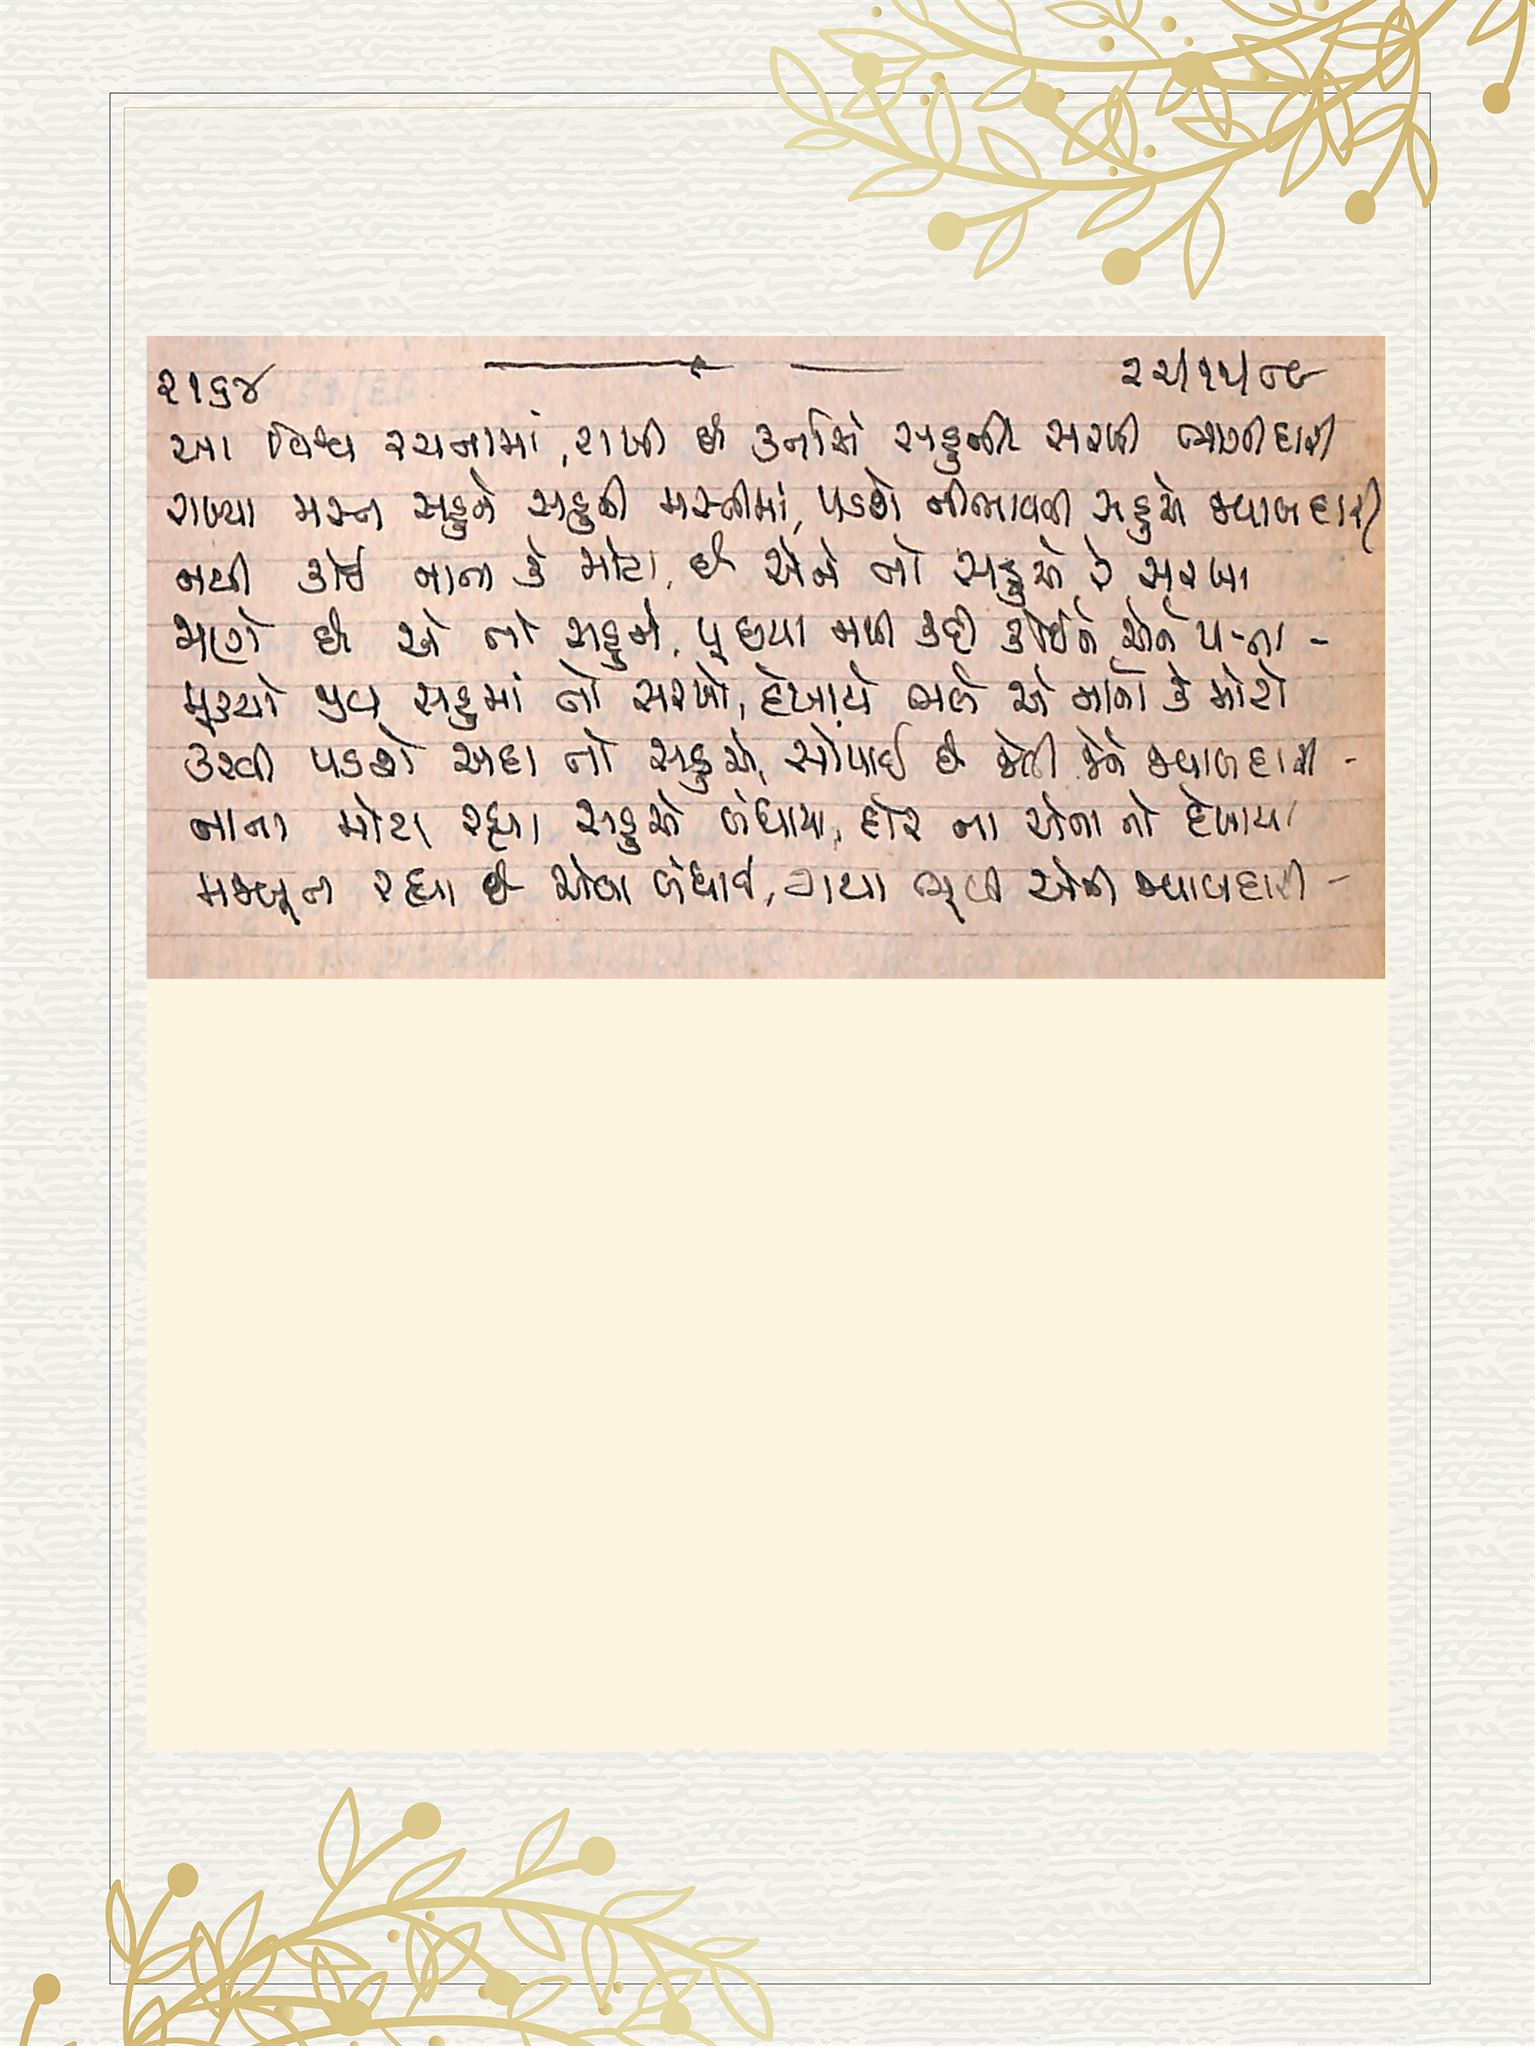 ૨૧૬૪ ૨૨/૧૧/૮૯
આ વિશ્વ રચનામાં, રાખી છે કર્તાએ સહુની સરખી ભાગીદારી
રાખ્યા મસ્ત સહુને સહુની મસ્તીમાં, પડશે નીભાવવી સહુએ જવાબદારી
નથી કોઈ નાના કે મોટા, છે એને તો સહુએ રે સરખા
ગણે છે એ તો સહુને, પૂછયા નથી કદી કોઈને એને પત્તા -
મૂક્યો જીવ સહુમાં તો સરખો, દેખાયે ભલે એ નાનો કે મોટો
કરવી પડશે અદા તો સહુએ, સોંપાઈ છે જેવી જેને જવાબદારી -
નાના મોટા રહ્યા સહુએ બંધાયા, દોર ના એના તો દેખાયા
મજબૂત રહ્યા છે એવા બંધાઈ, ગયા ભૂલી એની જવાબદારી -